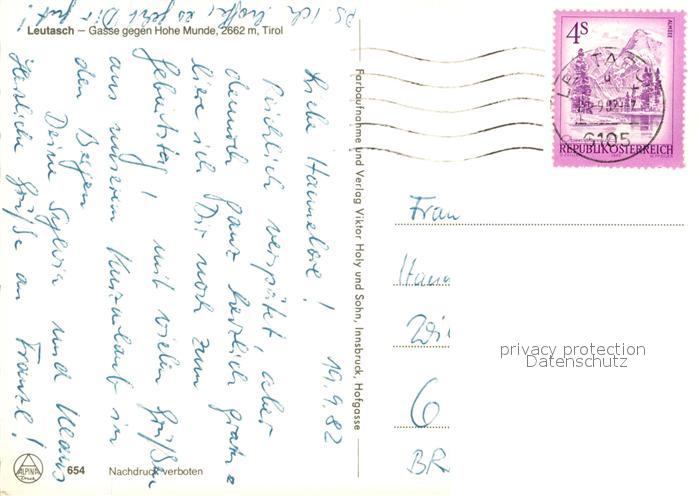 Ps. Ich hoffe, es geht Dir gut!
Leutasch – Gasse gegen Hohe Munde, 2662 m, Tirol
19.9.82
Liebe Hannelore!
Reichlich verspätet, aber
dennoch ganz herzlich gratu-
liere ich Dir noch zum
Geburtstag! mit vielen Grüßen
aus unserem Kurzurlaub in
den Bergen
Deine Sylvia und Klaus
Herzliche Grüße an Franzl!
ALPINA
Druck
654 Nachdruck verboten
Farbaufnahme und Verlag Viktor Holy und Sohn, Innsbruck, Hofgasse
4S
ALMSEE
REPUBLIK ÖSTERREICH
6105
Frau
Hann
6
privacy protection
Datenschutz